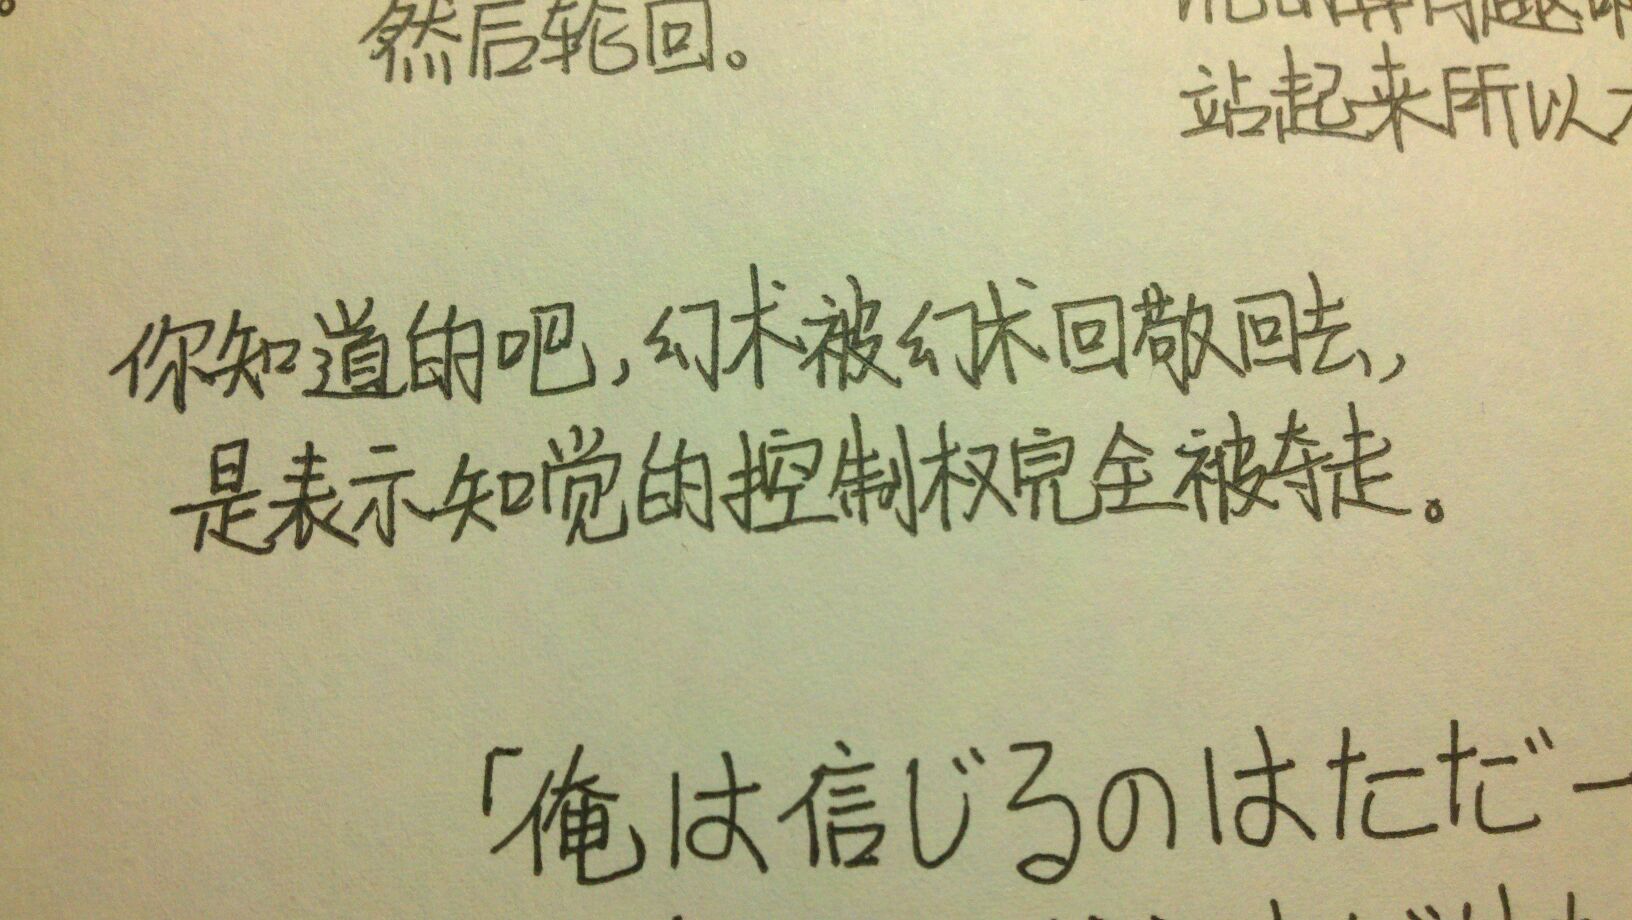 然后轮回。
站起来所以
你知道的吧，幻术被幻术回敬回去，
是表示知觉的控制权完全被夺走。
「俺は信じるのはただ一